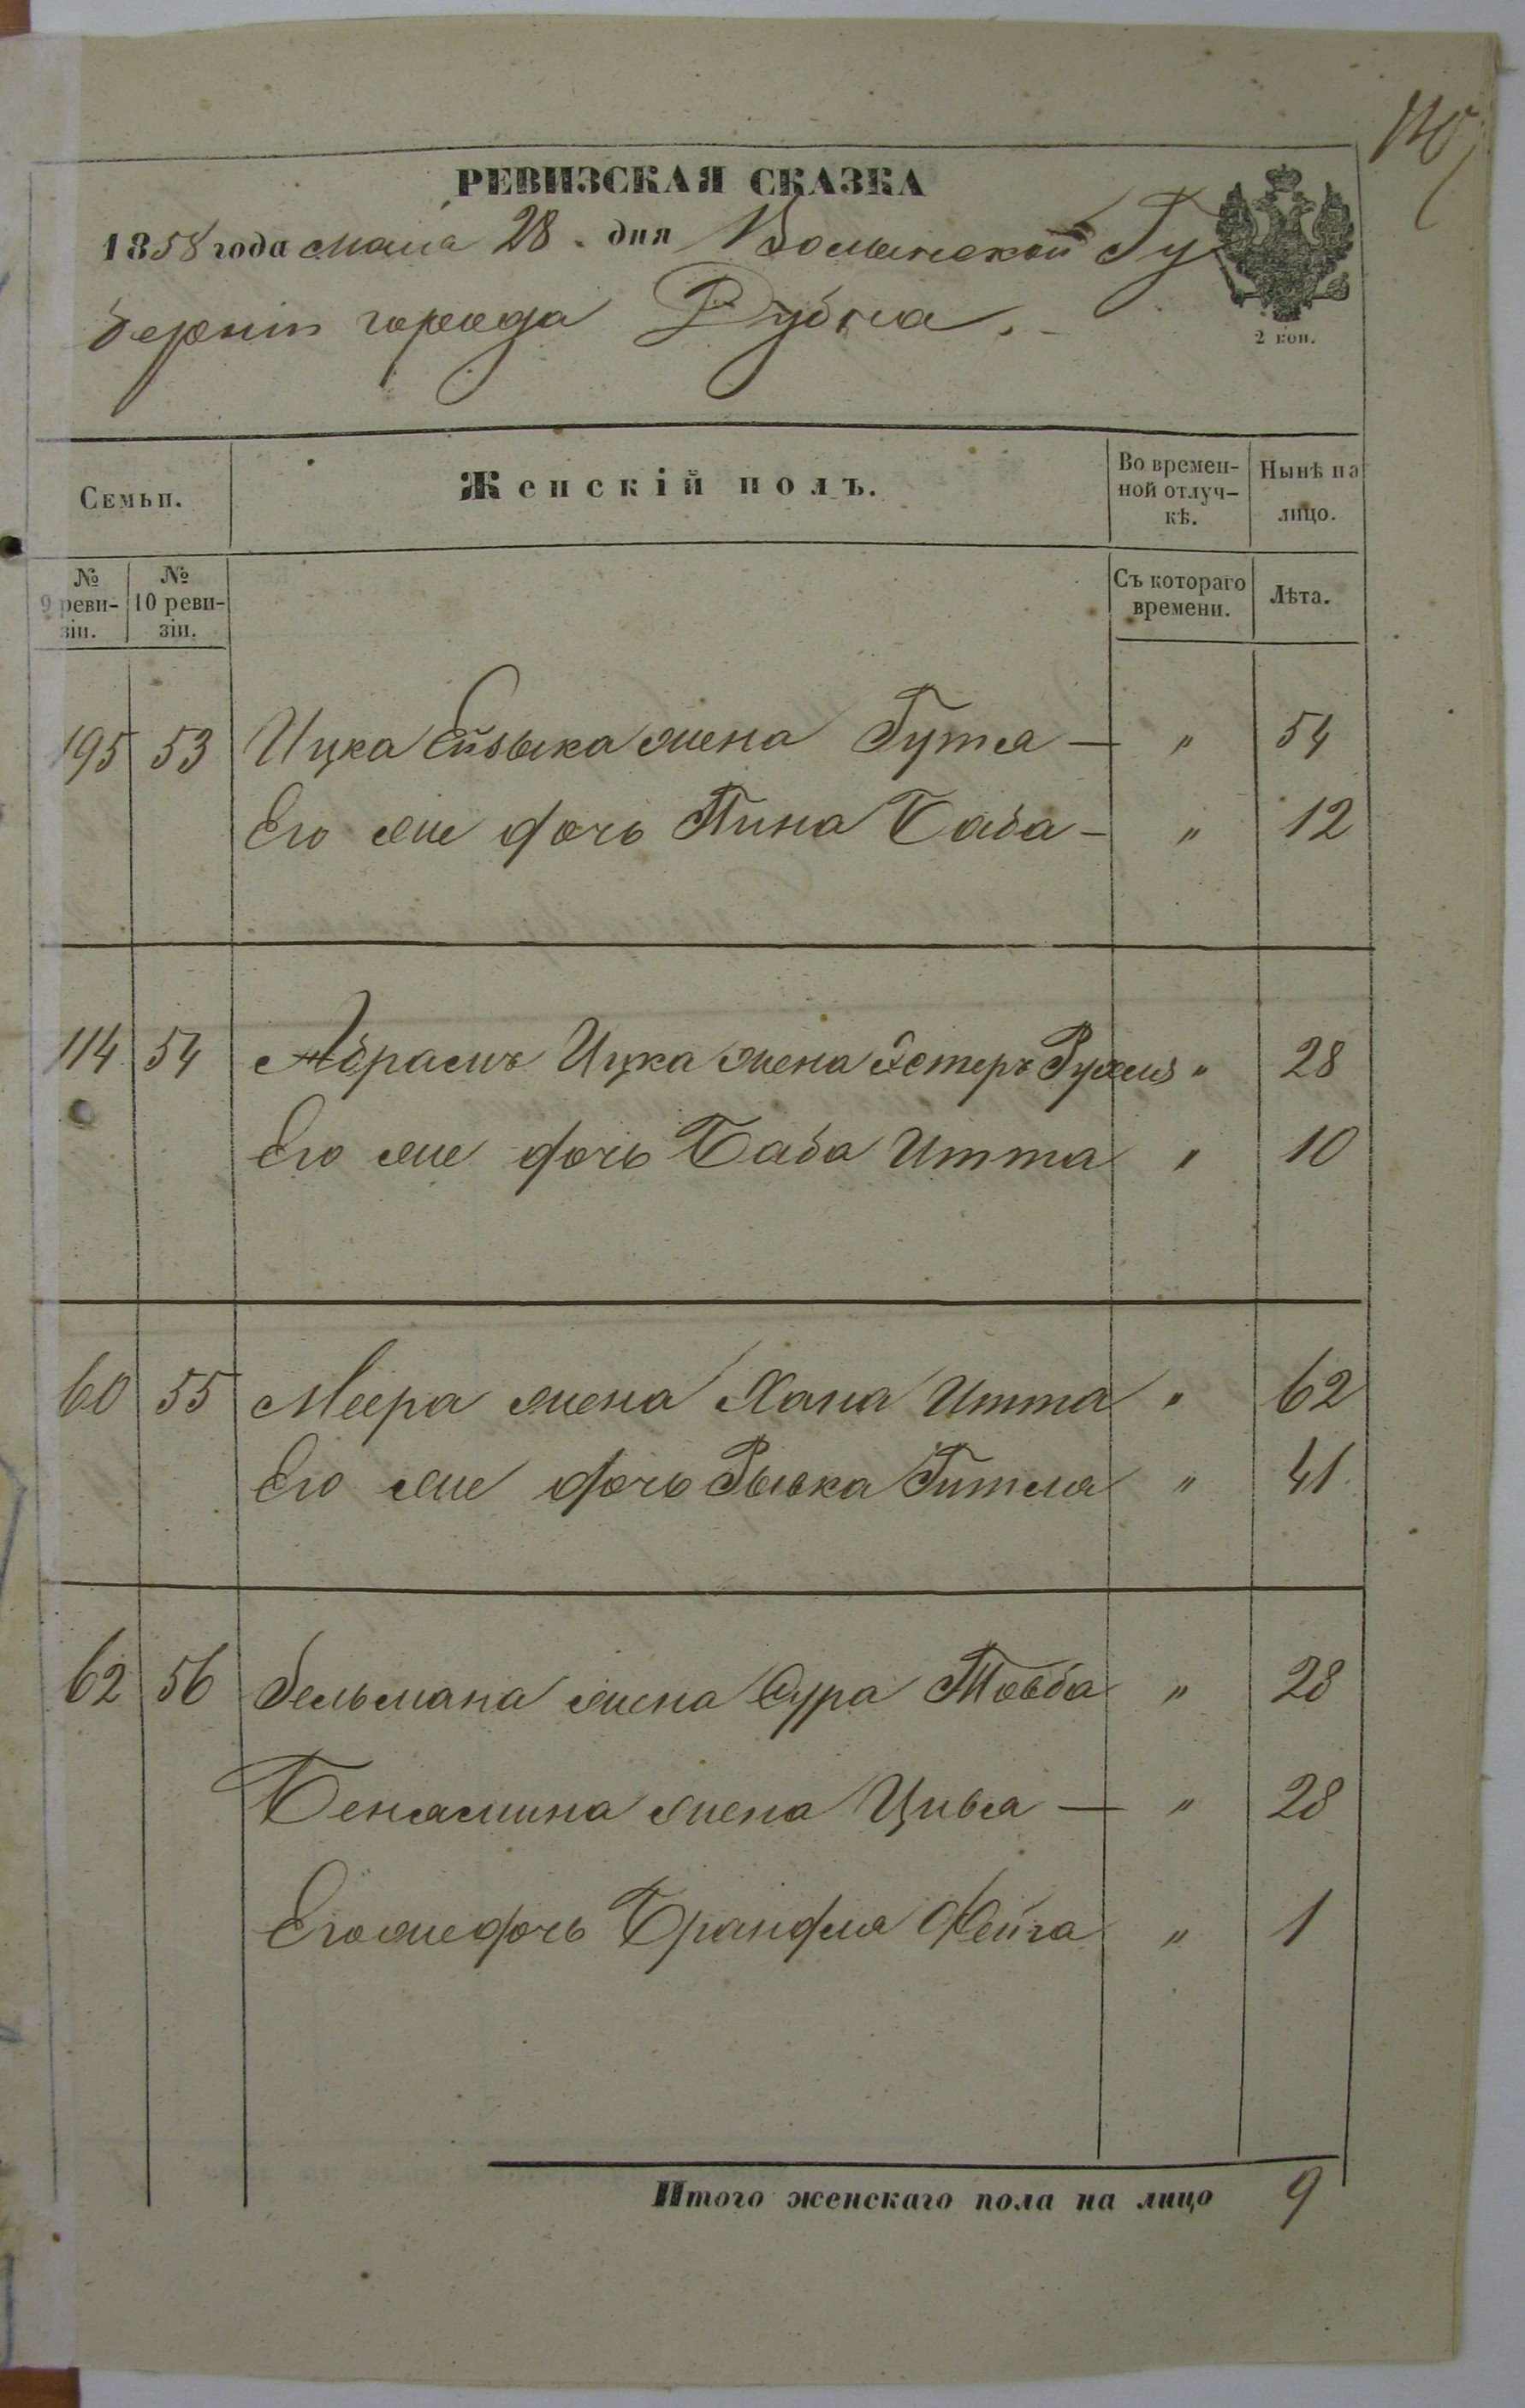 РЕВИЗСКАЯ СКАЗКА
1858 года мaiя 28. дня Волынской Гу
берніи города Дубна.
2 коп.
Семьи.
Женскій полъ.
Во времен-
ной отлуч-
кѣ.
Нынѣ на
лицо.
№
9 реви-
зіи.
№
10 реви-
зіи.
Съ котораго
времени.
Лѣта.
195 53 Ицка Ейзыка жена Гутля — " 54
Его же дочь Пина Баба — " 12
114 54 Абрамъ Ицка жена Эстеръ Рухля " 28
Его же дочь Баба Итта " 10
60 55 Меера жена Хана Итта " 62
Его же дочь Рывка Гитля " 41
62 56 Зельмана жена Сура Товба " 28
Бенямина жена Цивья — " 28
Его же дочь Брандля Фейга " 1
Итого женскаго пола на лицо 9